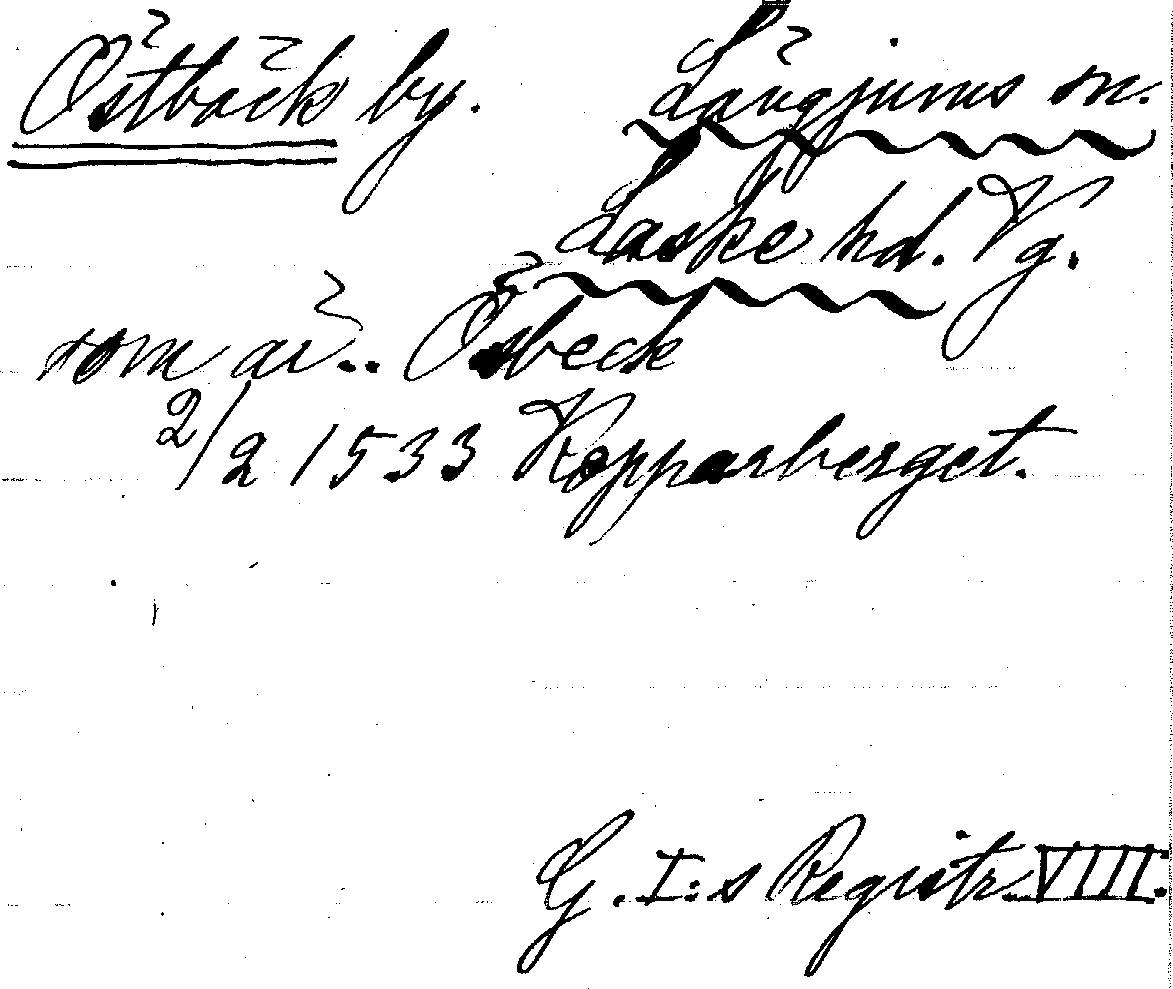 Östbäck by. Långjums sn.
Laske hd. Vg.
som är.. Ösbeck
2/2 1533 Kopparberget.
G. I:s Registr. VIII.